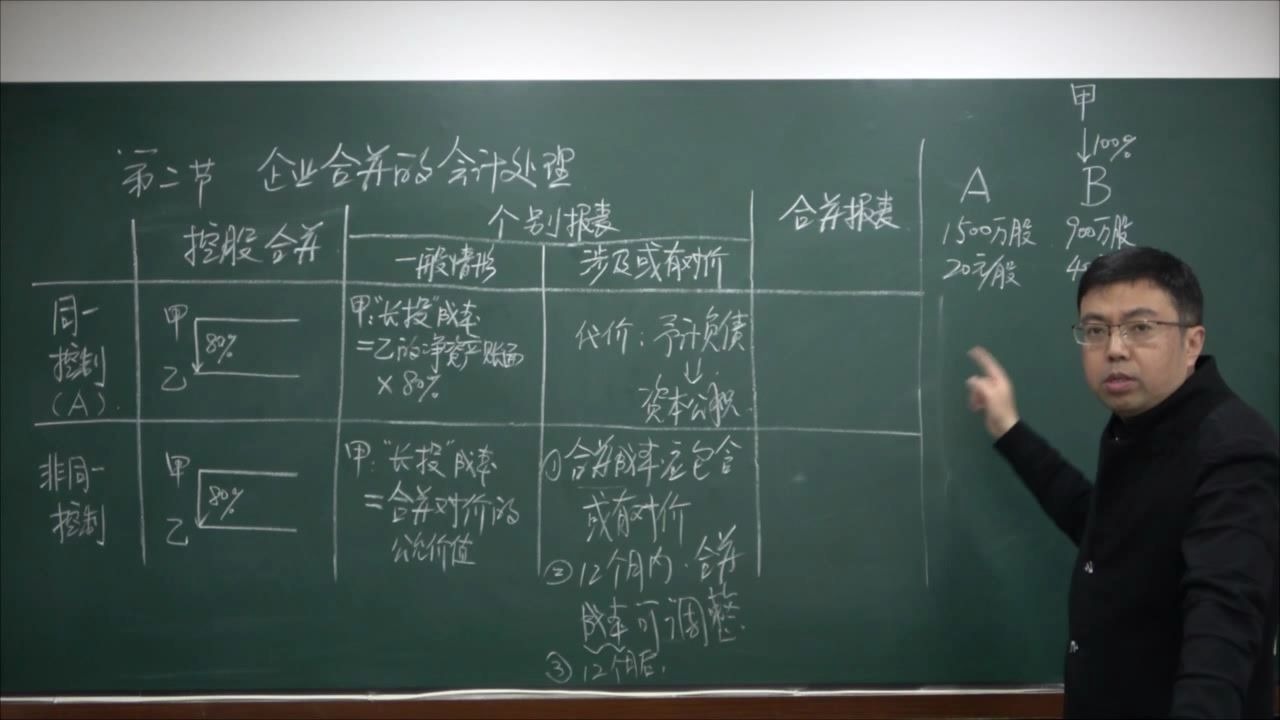 第二节 企业合并的会计处理
控股合并
个别报表
合并报表
一般情形
涉及或有对价
同一
控制
(A)
甲
80%
乙
甲:"长投"成本
=乙的净资产账面
×80%
代价:予计负债
↓
资本公积
非同一
控制
甲
80%
乙
甲:"长投"成本
=合并对价的
公允价值
①合并成本应包含
或有对价
②12个月内.合并
成本可调整.
③12个月后,
甲
↓100%
A B
1500万股 900万股
20元/股